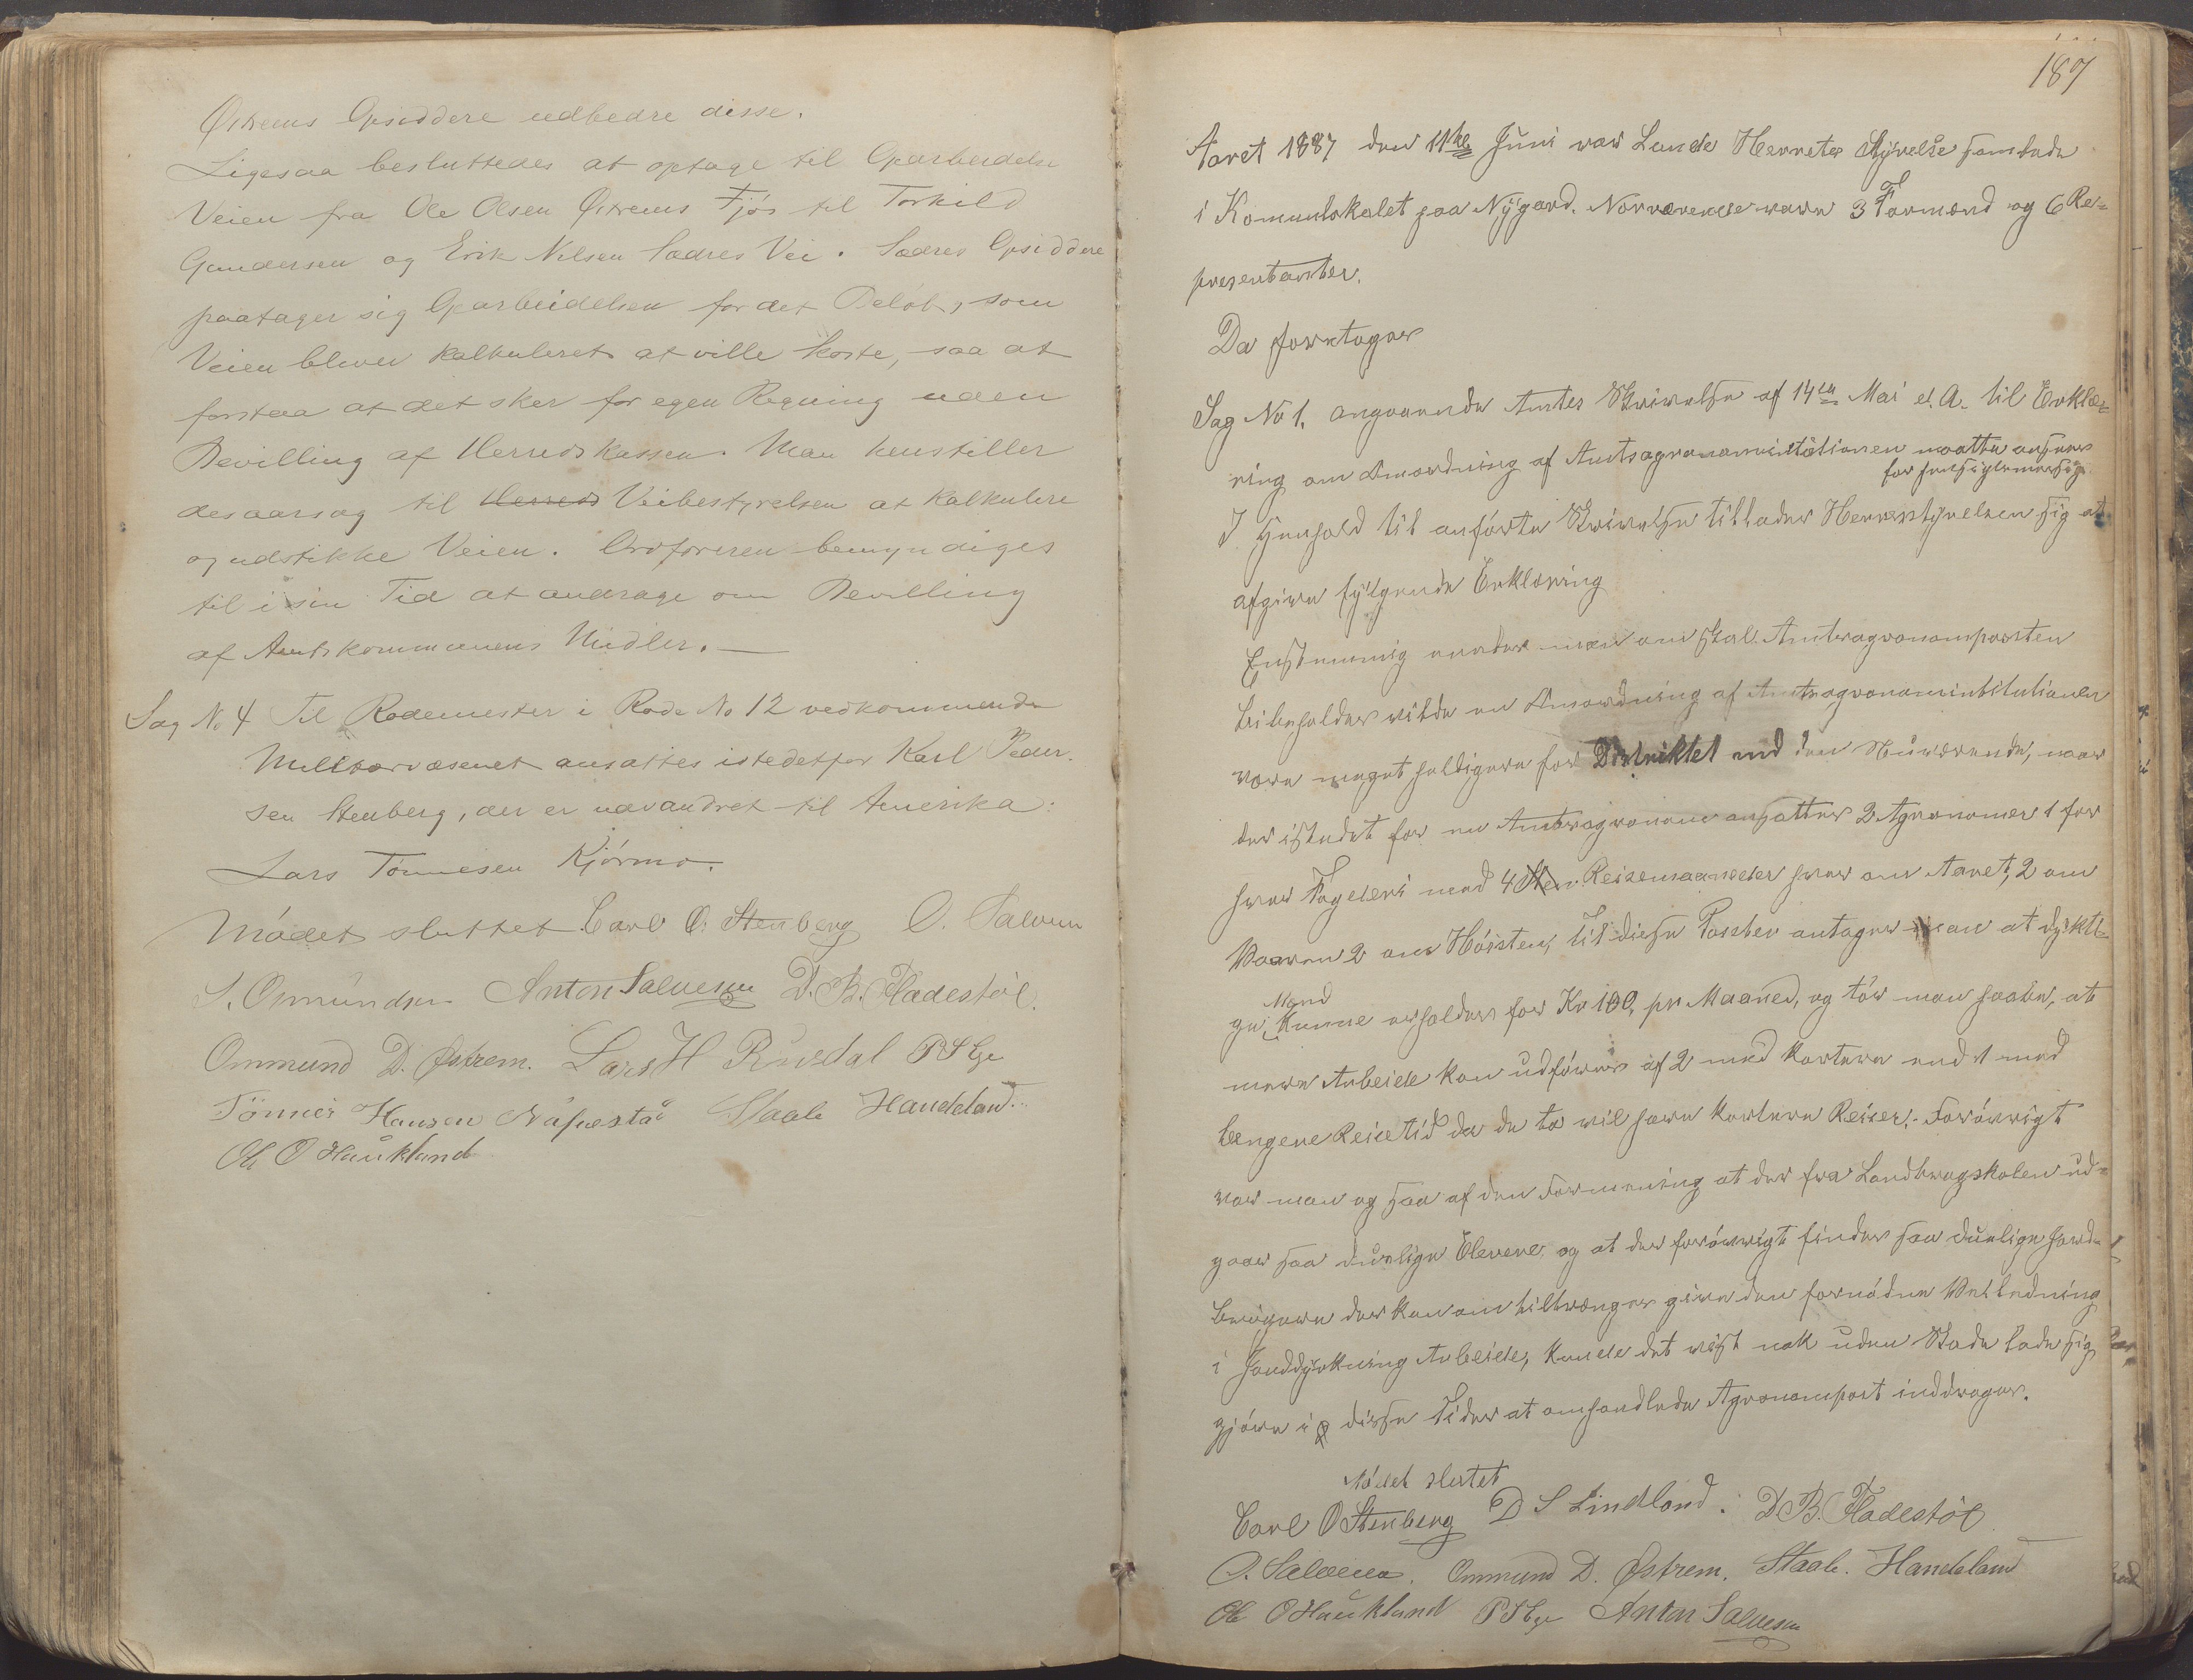 Østrems Opsiddere udbedre disse.
Ligesaa besluttedes at optage til Oparbeidelse
Veien fra Ole Olsen Østrems Fjøs til Torkild
Gundersen og Erik Nilsen Sædres Vei. Sædres Opsiddere
paatager sig Oparbeidelsen for det Beløb, som
Veien bliver kalkuleret at ville koste, saa at
forstaa at det sker for egen Regning uden
Bevilling af Herredskassen. Man henstiller
desaarsag til Herreds Veibestyrelsen at kalkulere
og udstikke Veien. Ordføreren bemyndiges
til i sin Tid at andrage om Bevilling
af Amtskommunens Midler. —
Sag No 4 Til Rodemester i Rode No 12 vedkommende
Militærvæsenet ansattes istedetfor Karl Peder-
sen Stenberg, der er udvandret til Amerika:
Lars Tønnesen Kjørmo.
Mødet sluttet. Carl O. Stenberg O. Salvesen
S. Omundsen Anton Salvesen D. B. Fladestøl.
Ommund D. Østrem. Lars H Rusdal
Tønnes Hansen Staale Handeland.
Ole O Haukland
187
Aaret 1887 den 11te Juni var Lunde Herreds Styrelse samlede
i Komunlokalet paa Nygaard. Nærværende vare 3 Formænd og 6 Re-
presentanter.
Da foretoges
Sag No 1. angaaende Amtes Skrivelse af 14de Mai d. A. til Erklæ-
ring om Omordning af Amtsagronominstitutionen maatte ansees
for hensigtsmæssig.
I Henhold til anførte Skrivelse tillader Herredstyrelsen sig at
afgive følgende Erklæring
Enstemmig mener man om skal Amtsagronomposten
beibeholdes vilde en Omordning af Amtsagronominstitutionen
være meget heldigere for Distriktet end den Nuværende, naar
der istedet for en Amtsagronom ansattes 2 Agronomer 1 for
hver Fogderi med 4 Reisemaaneder hver om Aaret, 2 om
Vaaren 2 om Høsten, til disse Poster antager man at dygti-
Mænd
ge kunne erholdes for Kr 100, pr Maaned, og tør man haabe, at
mere Arbeide kan udføres af 2 med kortere end 1 med
længere Reisetid da de to vil have kortere Reiser. Forøvrigt
var man og saa af den Formening at der fra Landbrugskolen ud-
gaar saa duelige Elevere, og at der forøvrigt findes saa duelige Jord-
brugere der kan om tiltrænges give den fornødne Veiledning
i Jorddyrkning Arbeide, kunde det vist nok uden Skade lade sig
gjøre i disse Tider at omhandlede Agronompost inddrages.
Mødet slutet
Carl O Stenberg D S Lindland. D. B. Fladestøl
O. Salvesen. Ommund D. Østrem. Staale. Handeland
Ole O Haukland Anton Salvesen